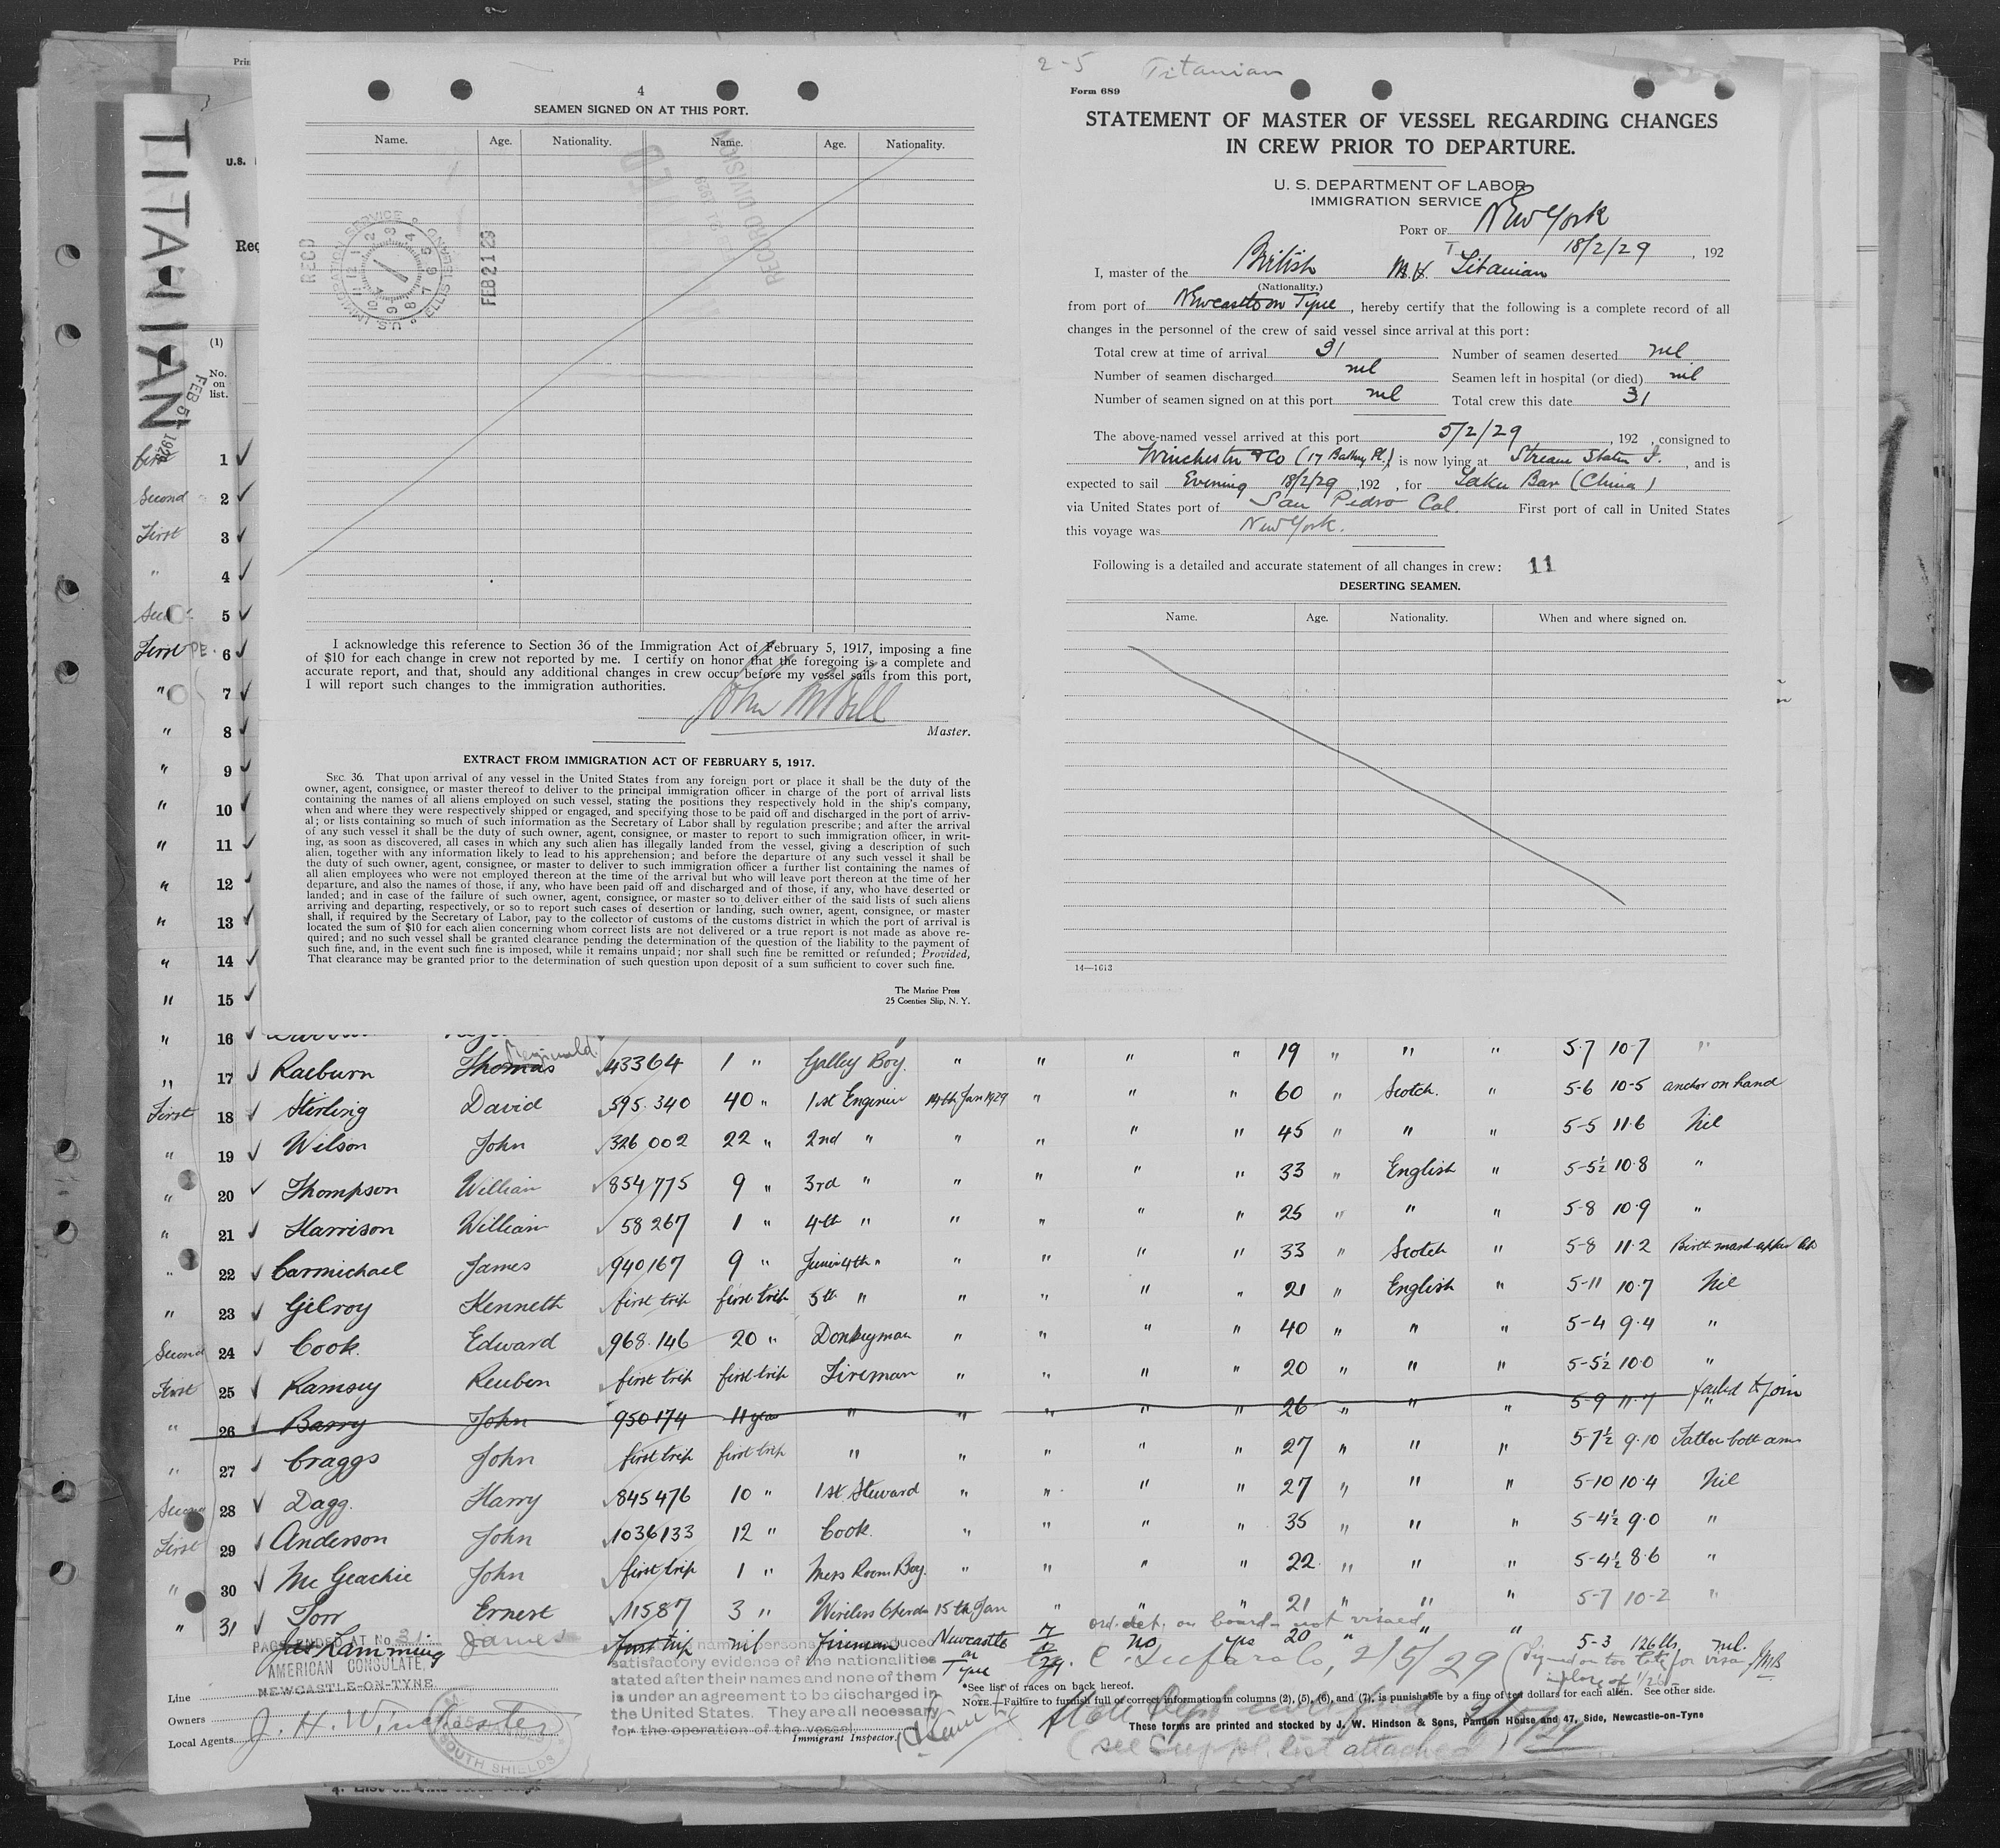 TITANIAN
FEB 5 1929
4
SEAMEN SIGNED ON AT THIS PORT.
Name. Age. Nationality. Name. Age. Nationality.
RECORD DIVISION
FEB 21 1929
REC'D
U.S. IMMIGRATION SERVICE
ELLIS ISLAND
FEB 21 29
I acknowledge this reference to Section 36 of the Immigration Act of February 5, 1917, imposing a fine
of $10 for each change in crew not reported by me. I certify on honor that the foregoing is a complete and
accurate report, and that, should any additional changes in crew occur before my vessel sails from this port,
I will report such changes to the immigration authorities.
Master.
EXTRACT FROM IMMIGRATION ACT OF FEBRUARY 5, 1917.
SEC. 36. That upon arrival of any vessel in the United States from any foreign port or place it shall be the duty of the
owner, agent, consignee, or master thereof to deliver to the principal immigration officer in charge of the port of arrival lists
containing the names of all aliens employed on such vessel, stating the positions they respectively hold in the ship's company,
when and where they were respectively shipped or engaged, and specifying those to be paid off and discharged in the port of arriv-
al; or lists containing so much of such information as the Secretary of Labor shall by regulation prescribe; and after the arrival
of any such vessel it shall be the duty of such owner, agent, consignee, or master to report to such immigration officer, in writ-
ing, as soon as discovered, all cases in which any such alien has illegally landed from the vessel, giving a description of such
alien, together with any information likely to lead to his apprehension; and before the departure of any such vessel it shall be
the duty of such owner, agent, consignee, or master to deliver to such immigration officer a further list containing the names of
all alien employees who were not employed thereon at the time of the arrival but who will leave port thereon at the time of her
departure, and also the names of those, if any, who have been paid off and discharged and of those, if any, who have deserted or
landed; and in case of the failure of such owner, agent, consignee, or master so to deliver either of the said lists of such aliens
arriving and departing, respectively, or so to report such cases of desertion or landing, such owner, agent, consignee, or master
shall, if required by the Secretary of Labor, pay to the collector of customs of the customs district in which the port of arrival is
located the sum of $10 for each alien concerning whom correct lists are not delivered or a true report is not made as above re-
quired; and no such vessel shall be granted clearance pending the determination of the question of the liability to the payment of
such fine, and, in the event such fine is imposed, while it remains unpaid; nor shall such fine be remitted or refunded; Provided,
That clearance may be granted prior to the determination of such question upon deposit of a sum sufficient to cover such fine.
The Marine Press
25 Coenties Slip, N. Y.
2-5 Titanian
Form 689
STATEMENT OF MASTER OF VESSEL REGARDING CHANGES
IN CREW PRIOR TO DEPARTURE.
U. S. DEPARTMENT OF LABOR
IMMIGRATION SERVICE
PORT OF New York
18/2/29, 192
I, master of the British M.V. Titanian
(Nationality.)
from port of Newcastle on Tyne, hereby certify that the following is a complete record of all
changes in the personnel of the crew of said vessel since arrival at this port:
Total crew at time of arrival 31 Number of seamen deserted nil
Number of seamen discharged nil Seamen left in hospital (or died) nil
Number of seamen signed on at this port nil Total crew this date 31
The above-named vessel arrived at this port 5/2/29, 192 , consigned to
Winchester & Co (17 Battery Pl.) is now lying at Stream Staten I., and is
expected to sail Evening 18/2/29, 192 , for Taku Bar (China)
via United States port of San Pedro Cal. First port of call in United States
this voyage was New York.
Following is a detailed and accurate statement of all changes in crew: 11
DESERTING SEAMEN.
Name. Age. Nationality. When and where signed on.
14—1613
(1)
No.
on
list.
First 1
Second 2
First 3
" 4
5
First 6
" 7
" 8
" 9
" 10
" 11
" 12
" 13
" 14
" 15
" 16
" 17 Raeburn Thomas Reginald 43364 1 " Galley Boy. " " " " 19 " " " 5-7 10-7 "
First 18 Stirling David 595.340 40 " 1st Engineer 14th Jan 1929 " " " 60 " Scotch. " 5-6 10-5 anchor on hand
" 19 Wilson John 326002 22 " 2nd " " " " " 45 " " " 5-5 11.6 Nil
" 20 Thompson William 854775 9 " 3rd " " " " " 33 " English " 5-5½ 10.8 "
" 21 Harrison William 58267 1 " 4th " " " " " 25 " " " 5-8 10.9 "
" 22 Carmichael James 940167 9 " Junior 4th " " " " " 33 " Scotch " 5-8 11.2 Birth mark
" 23 Gilroy Kenneth first trip first trip 5th " " " " " 21 " English " 5-11 10.7 Nil
Second 24 Cook. Edward 968.146 20 " Donkeyman " " " " 40 " " " 5-4 9.4 "
First 25 Ramsey Reuben first trip first trip Fireman " " " " 20 " " " 5-5½ 10.0 "
" 26 Barry John 950174 11 years " " " " " 26 " " " 5-9 11.7 failed to join
" 27 Craggs John first trip first trip " " " " 27 " " " 5-7½ 9.10 Tattoo both arms
Second 28 Dagg. Harry 845476 10 " 1st Steward " " " " 27 " " " 5-10 10.4 Nil
First 29 Anderson John 1036133 12 " Cook. " " " " 35 " " " 5-4½ 9.0 "
" 30 McGeachie John first trip 1 " Mess Room Boy. " " " " 22 " " " 5-4½ 8.6 "
" 31 Torr Ernest 11587 3 " Wireless 15th Jan " " " 21 " " " 5-7 10-2 "
ord. det. on board - not visaed
Lamming James first trip nil fireman Newcastle on Tyne no yes 20 " " " 5-3 126 lbs. nil.
PAGE ENDED AT No. 31
AMERICAN CONSULATE,
NEWCASTLE-ON-TYNE
satisfactory evidence of the nationalities
stated after their names and none of them
is under an agreement to be discharged in
the United States. They are all necessary
for the operation of the vessel.
2/5/29 (Signed on too late for visa
in place of
Line
Owners
Local Agents J. H. Winchester
SOUTH SHIELDS
Immigrant Inspector.
*See list of races on back hereof.
NOTE.—Failure to furnish full or correct information in columns (2), (5), (6), and (7), is punishable by a fine of ten dollars for each alien. See other side.
These forms are printed and stocked by J. W. Hindson & Sons, Pandon House and 47, Side, Newcastle-on-Tyne
State Dept notified 2/5/29
(see Suppl. list attached)